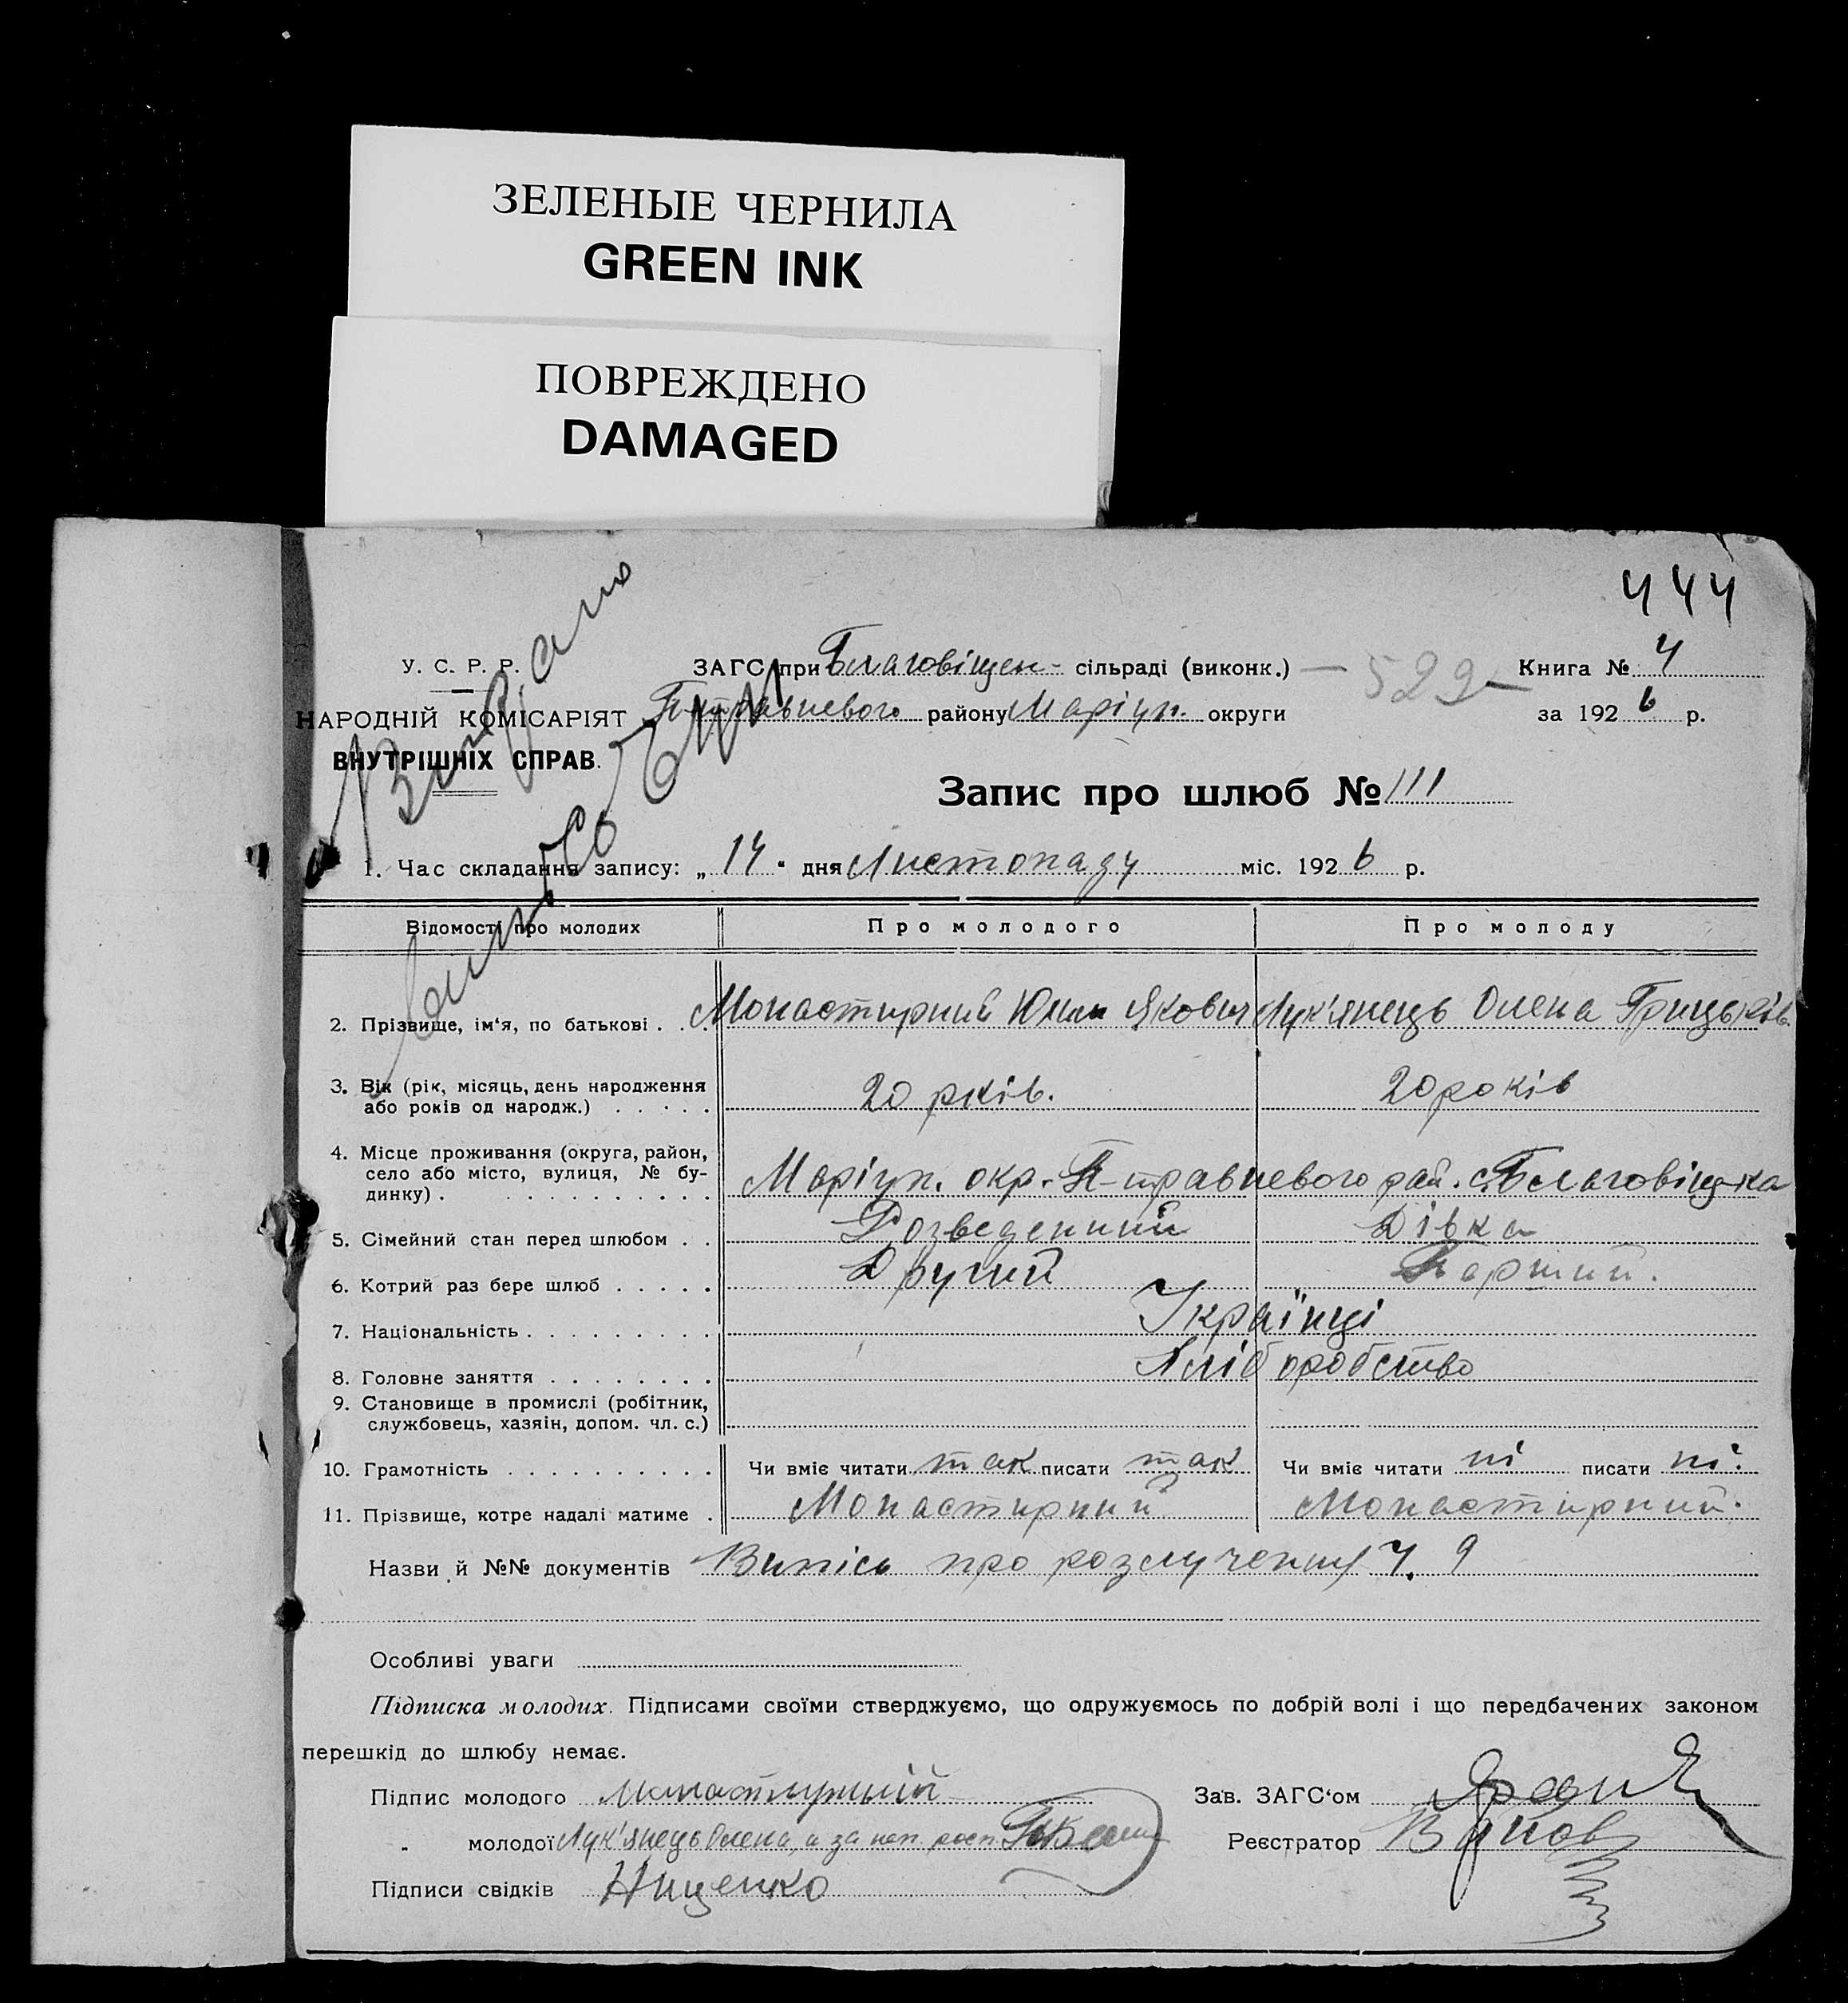 ЗЕЛЕНЫЕ ЧЕРНИЛА
GREEN INK
ПОВРЕЖДЕНО
DAMAGED
444
У. С. Р. Р.
НАРОДНІЙ КОМІСАРІЯТ
ВНУТРІШНІХ СПРАВ.
ЗАГС при Благовіщен- сільраді (виконк.) — 529 —
П-травневого району Маріуп. округи
Книга № 4
за 1926 р.
Видано
Запис про шлюб № 111
1. Час складання запису: „14" дня Листопаду міс. 1926 р.
Відомості про молодих Про молодого Про молоду
2. Прізвище, ім'я, по батькові . . . Монастирний Юхим Якович Лук'янець Олена Грицьків.
3. Вік (рік, місяць, день народження
або років од народж.) . . . . . 20 рків. 20 років
4. Місце проживання (округа, район,
село або місто, вулиця, № бу-
динку) . . . . . . . . . . . Маріуп. окр. П-травневого рай. с. Благовіщ-ка
5. Сімейний стан перед шлюбом . . Розведенний Дівка
6. Котрий раз бере шлюб . . . . . Другий Перший.
7. Національність . . . . . . . . . Українці
8. Головне заняття . . . . . . . . Хліборобство
9. Становище в промислі (робітник,
службовець, хазяін, допом. чл. с.)
10. Грамотність . . . . . . . . . . Чи вміє читати так писати так Чи вміє читати ні писати ні.
11. Прізвище, котре надалі матиме . Монастирний Монастирний.
Назви й №№ документів Випісь про розлученння Ч. 9
Особливі уваги
Підписка молодих. Підписами своїми стверджуємо, що одружуємось по добрій волі і що передбачених законом
перешкід до шлюбу немає.
Підпис молодого Монастирний Зав. ЗАГС'ом
„ молодої Лук'янець Олена, а за неп. росп. Реєстратор
Підписи свідків Нищенко